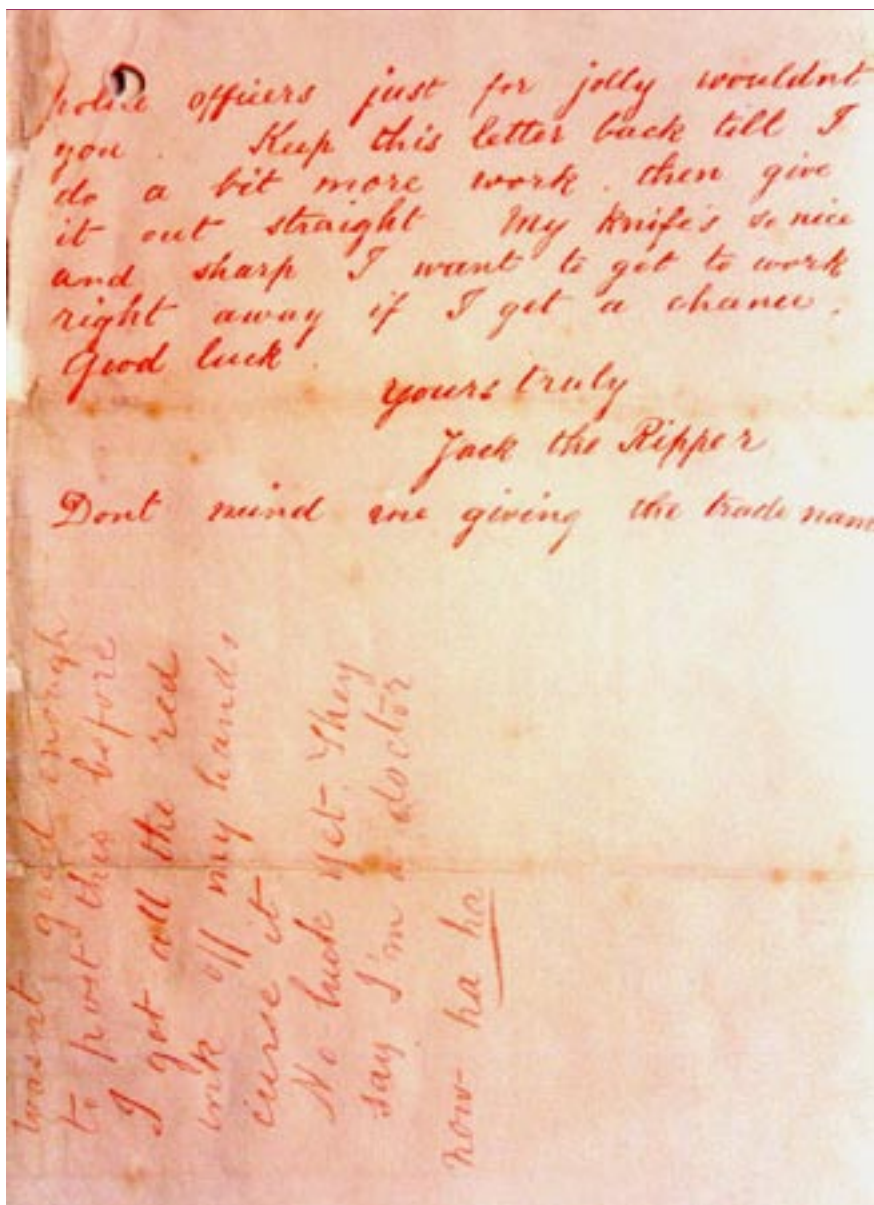 police officers just for jolly wouldnt
you. Keep this letter back till I
do a bit more work. then give
it out straight My knife's so nice
and sharp I want to get to work
right away if I get a chance.
Good luck.
yours truly
Jack the Ripper
Dont mind me giving the trade nam
wasnt good enough
to post this before
I got all the red
ink off my hands
curse it
No luck yet. They
say I'm a doctor
now ha ha